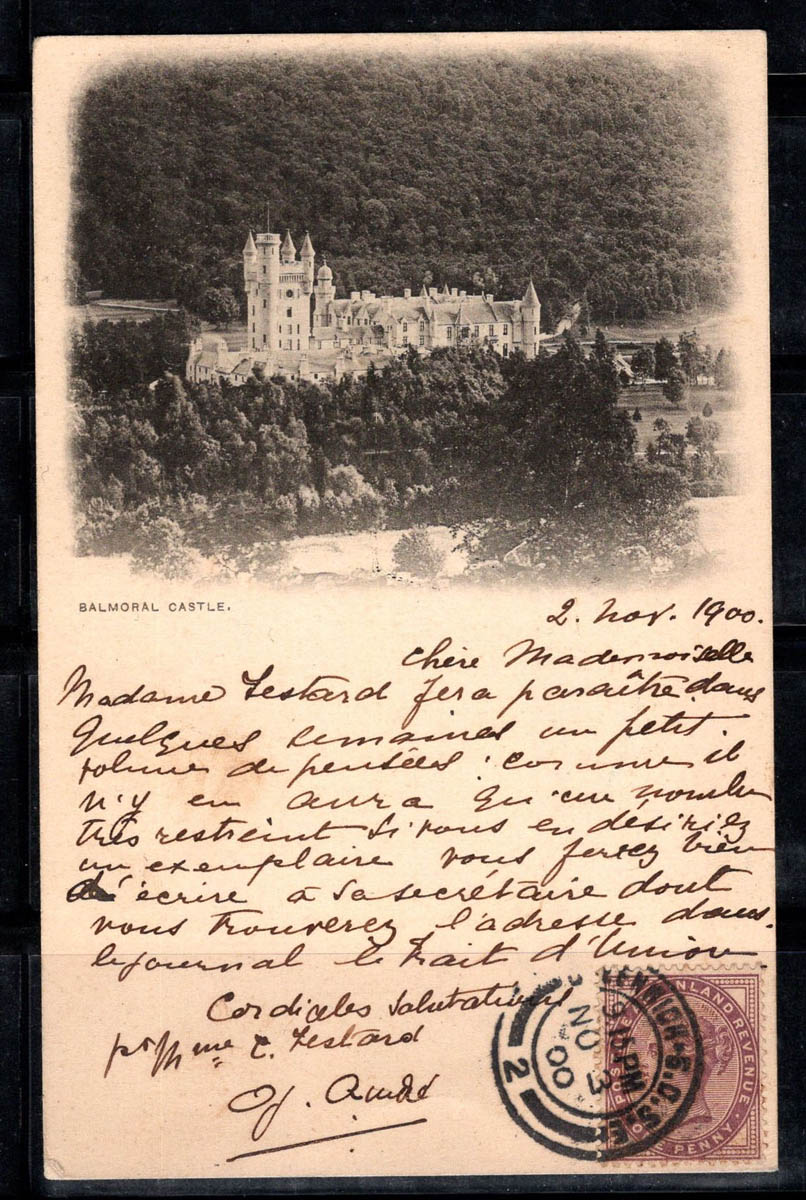 BALMORAL CASTLE.
2. Nov. 1900.
Chère Mademoiselle
Madame Testard fera paraître dans
quelques semaines un petit
volume de pensées : comme il
n'y en aura qu'un nombre
très restreint si vous en désiriez
un exemplaire vous feriez bien
d'écrire à sa secrétaire dont
vous trouverez l'adresse dans
le journal le Trait d'Union
Cordiales salutations
pr Mme E. Testard
André
GREENWICH · S.O.S.E
9.15 PM
NO 3
00
2
POSTAGE & INLAND REVENUE
ONE PENNY